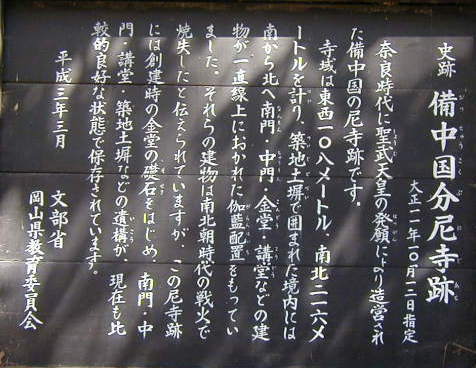 史跡 備中国分尼寺跡
びっちゅうこくぶんにじあと
大正一一年一〇月一二日指定
奈良時代に聖武天皇の発願により造営され
た備中国の尼寺跡です。
寺域は東西一〇八メートル、南北二一六メ
ートルを計り、築地土塀で囲まれた境内には
南から北へ南門・中門・金堂・講堂などの建
物が一直線上におかれた伽藍配置をもってい
ました。それらの建物は南北朝時代の戦火で
焼失したと伝えられていますが、この尼寺跡
には創建時の金堂の礎石をはじめ、南門・中
門・講堂・築地土塀などの遺構が、現在も比
較的良好な状態で保存されています。
平成三年三月
文部省
岡山県教育委員会